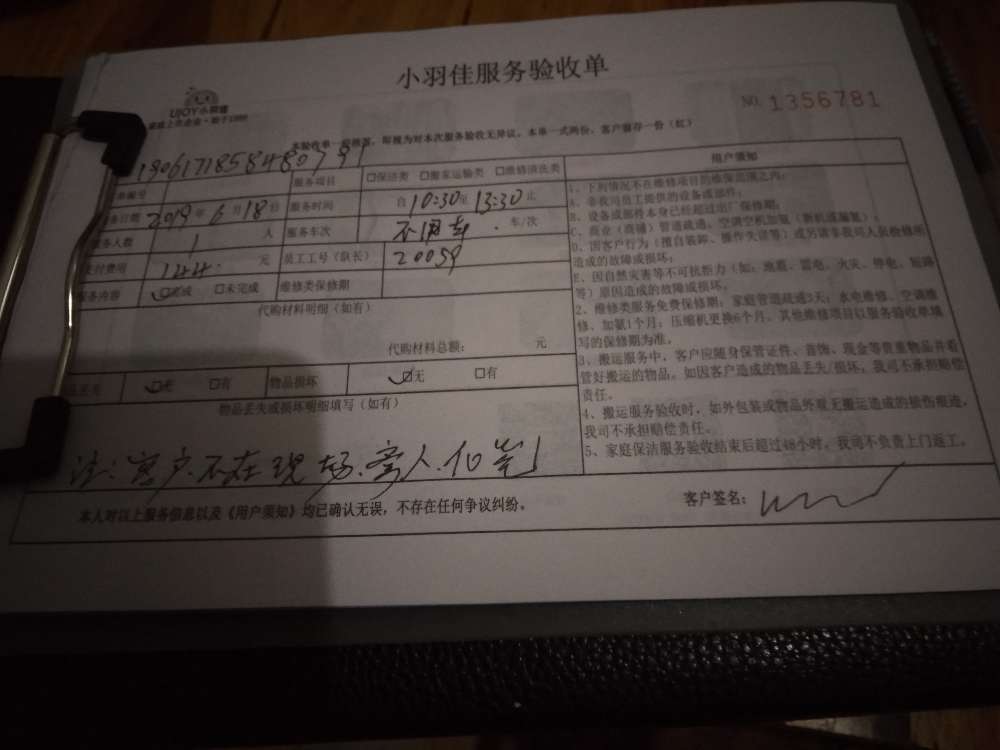 小羽佳服务验收单
UJOY小羽佳
家政上市企业·始于1999
NO. 1356781
本单一式两份，客户留存一份（红）
服务项目 □保洁类 □搬家运输类 □维修清洗类
服务日期 2019年6月18日 服务时间 自10:30至13:30止
服务人数 1 人 服务车次 不用车 车/次
支付费用 144 元 员工工号（队长） 20059
服务内容 ☑完成 □未完成 维修类保修期
代购材料明细（如有）
代购材料总额： 元
☑无 □有 物品损坏 ☑无 □有
物品丢失或损坏明细填写（如有）
注：客户不在现场
本人对以上服务信息以及《用户须知》均已确认无误，不存在任何争议纠纷。
客户签名：
用户须知
1、下列情况不在维修项目的维保范围之内：
A、非我司员工提供的设备或部件；
B、设备或部件本身已经超过出厂保修期；
C、商业（商铺）管道疏通、空调空机加氨（新机或漏氟）；
D、因客户行为（擅自装卸、操作失误等）或另请非我司人员检修所
造成的故障或损坏；
E、因自然灾害等不可抗拒力（如：地震、雷电、火灾、停电、短路
等）原因造成的故障或损坏。
2、维修类服务免费保修期：家庭管道疏通3天；水电维修、空调维
修、加氨1个月；压缩机更换6个月。其他维修项目以服务验收单填
写的保修期为准。
3、搬运服务中，客户应随身保管证件、首饰、现金等贵重物品并看
管好搬运的物品。如因客户造成的物品丢失/损坏，我司不承担赔偿
责任。
4、搬运服务验收时，如外包装或物品外观无搬运造成的损伤痕迹，
我司不承担赔偿责任。
5、家庭保洁服务验收结束后超过48小时，我司不负责上门返工。